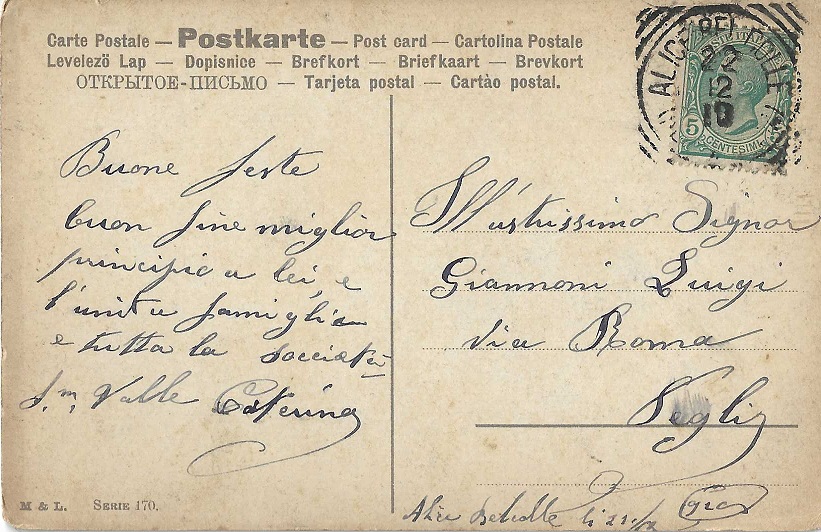 Carte Postale — Postkarte — Post card — Cartolina Postale
Levelező Lap — Dopisnice — Brefkort — Briefkaart — Brevkort
ОТКРЫТОЕ-ПИСЬМО — Tarjeta postal — Cartào postal.
ALICE BEL COLLE
22
12
10
5 CENTESIMI 5
Buone feste
buon fine miglior
principio a lei, e
l'unita famiglia
e tutta la soccietà
Valle Caterina
Illustrissimo Signor
Giannoni Luigi
via Roma
Veglio
M & L. SERIE 170.
Alice Belcolle li